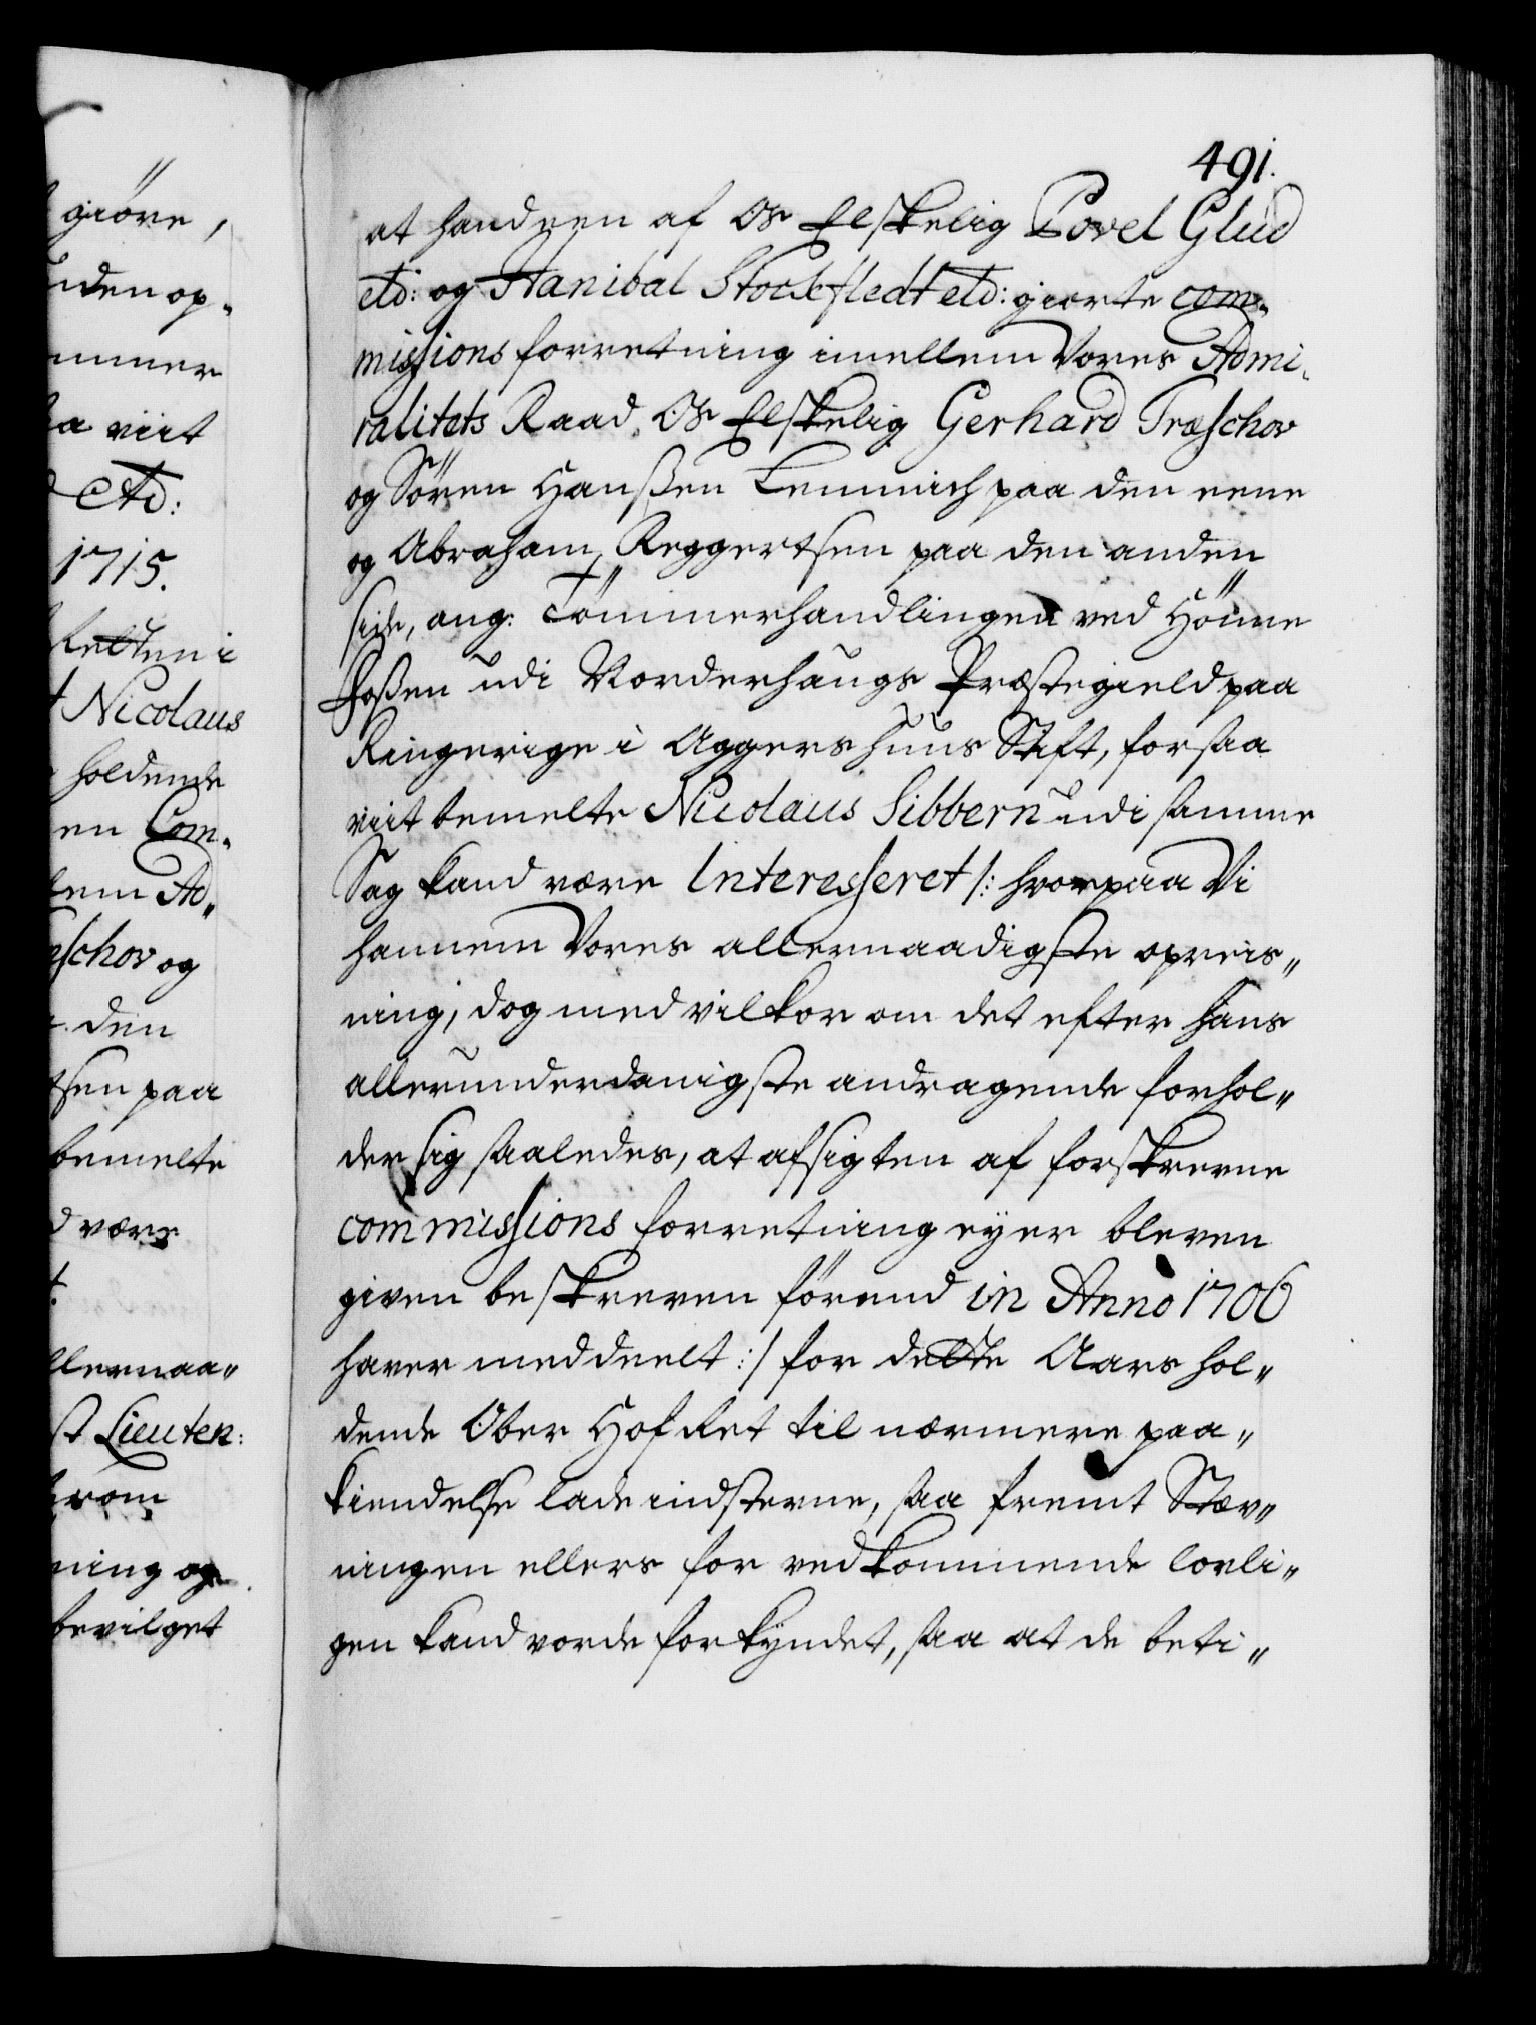 giöre,
uden op-
ummer
a viit
etc:
1715.
Retten i
Nicolaus
holdende
en Com-
lem Ad-
schov og
den
tsen paa
bemelte
d være
llernaa-
Lieuten:
ning og
bevilget
491.
at handeen af Os Elskelig Povel Glud
etc: og Hanibal Stockfledt etc: giorte com-
missions forretning imellem Vores Admi-
ralitets Raad Os Elskelig Gerhard Træschov
og Sören Hanßen Lemmich paa den eene
og Abraham Reggertsen paa den anden
side, ang: Tömmerhandlingen ved Hönne
Foßen udi Norderhaugs Præstegield paa
Ringerige i Aggershuus Stift, forsaa
viit bemelte Nicolaus Sibbern udi samme
Sag kand være Interesseret /: hvorpaa Vi
hannem Vores allernaadigste opreis-
ning, dog med vilkor om det efter hans
allerunderdanigste andragende forhol-
der sig saaledes, at afsigten af forskrevne
commissions forretning eyer bleven
given beskreven förend in Anno 1706
haver meddeelt :/ for dette Aars hol-
dende Ober Hof Ret til nærmere paa-
kiendelse lade indstevne, saa fremt Stæv-
ningen ellers for vedkommende lovli-
gen kand vorde forkyndet, saa at de beti-